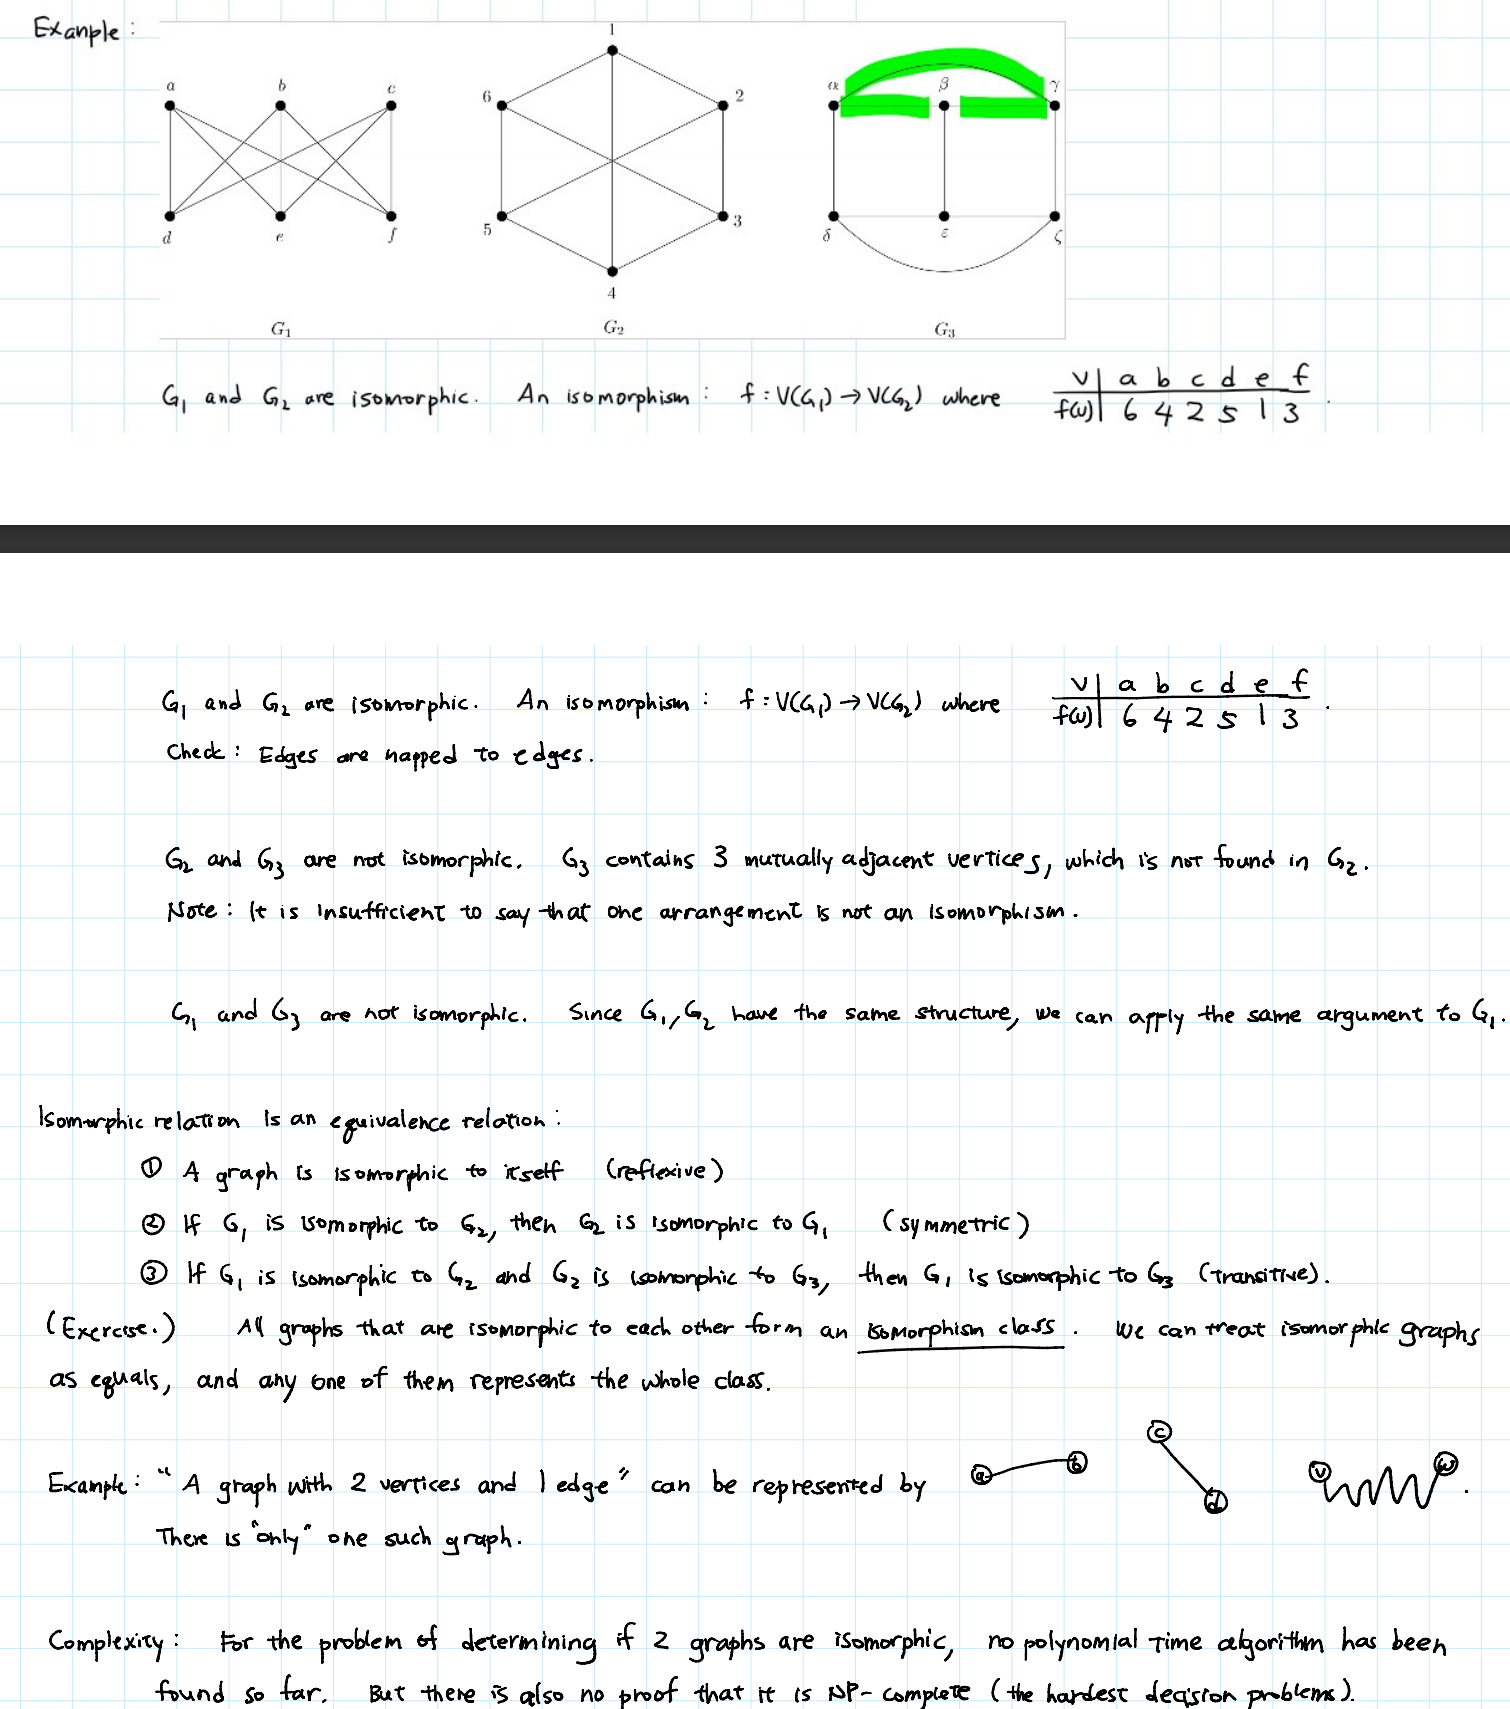 Example:
1
a b c 6 2 α β γ
d e f 5 3 δ ε ζ
4
G₁ G₂ G₃
G₁ and G₂ are isomorphic. An isomorphism: f: V(G₁) → V(G₂) where v | a b c d e f
f(v) | 6 4 2 5 1 3 .
G₁ and G₂ are isomorphic. An isomorphism: f: V(G₁) → V(G₂) where v | a b c d e f
f(v) | 6 4 2 5 1 3 .
Check: Edges are mapped to edges.
G₂ and G₃ are not isomorphic. G₃ contains 3 mutually adjacent vertices, which is not found in G₂.
Note: It is insufficient to say that one arrangement is not an isomorphism.
G₁ and G₃ are not isomorphic. Since G₁, G₂ have the same structure, we can apply the same argument to G₁.
Isomorphic relation is an equivalence relation:
① A graph is isomorphic to itself (reflexive)
② If G₁ is isomorphic to G₂, then G₂ is isomorphic to G₁ (symmetric)
③ If G₁ is isomorphic to G₂ and G₂ is isomorphic to G₃, then G₁ is isomorphic to G₃ (transitive).
(Exercise.) All graphs that are isomorphic to each other form an isomorphism class. We can treat isomorphic graphs
as equals, and any one of them represents the whole class.
Example: "A graph with 2 vertices and 1 edge" can be represented by a b c d v w .
There is "only" one such graph.
Complexity: For the problem of determining if 2 graphs are isomorphic, no polynomial time algorithm has been
found so far. But there is also no proof that it is NP-complete (the hardest decision problems).